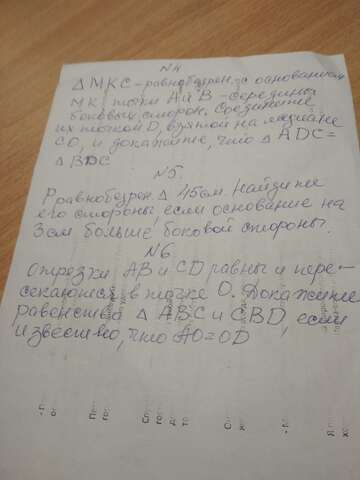 N4
△ MKC - равнобедрен. с основанием
MK. точки A и B - середины
боковых сторон. Соедините
их точкой D, взятой на медиане
CO, и докажите, что △ ADC =
△ BDC
N5.
P равнобедрен △ 45см. Найдите
его стороны, если основание на
3см больше боковой стороны.
N6
Отрезки AB и CD равны и пере-
секаются в точке O. Докажите
равенство △ ABC и CBD, если
известно, что AO = OD